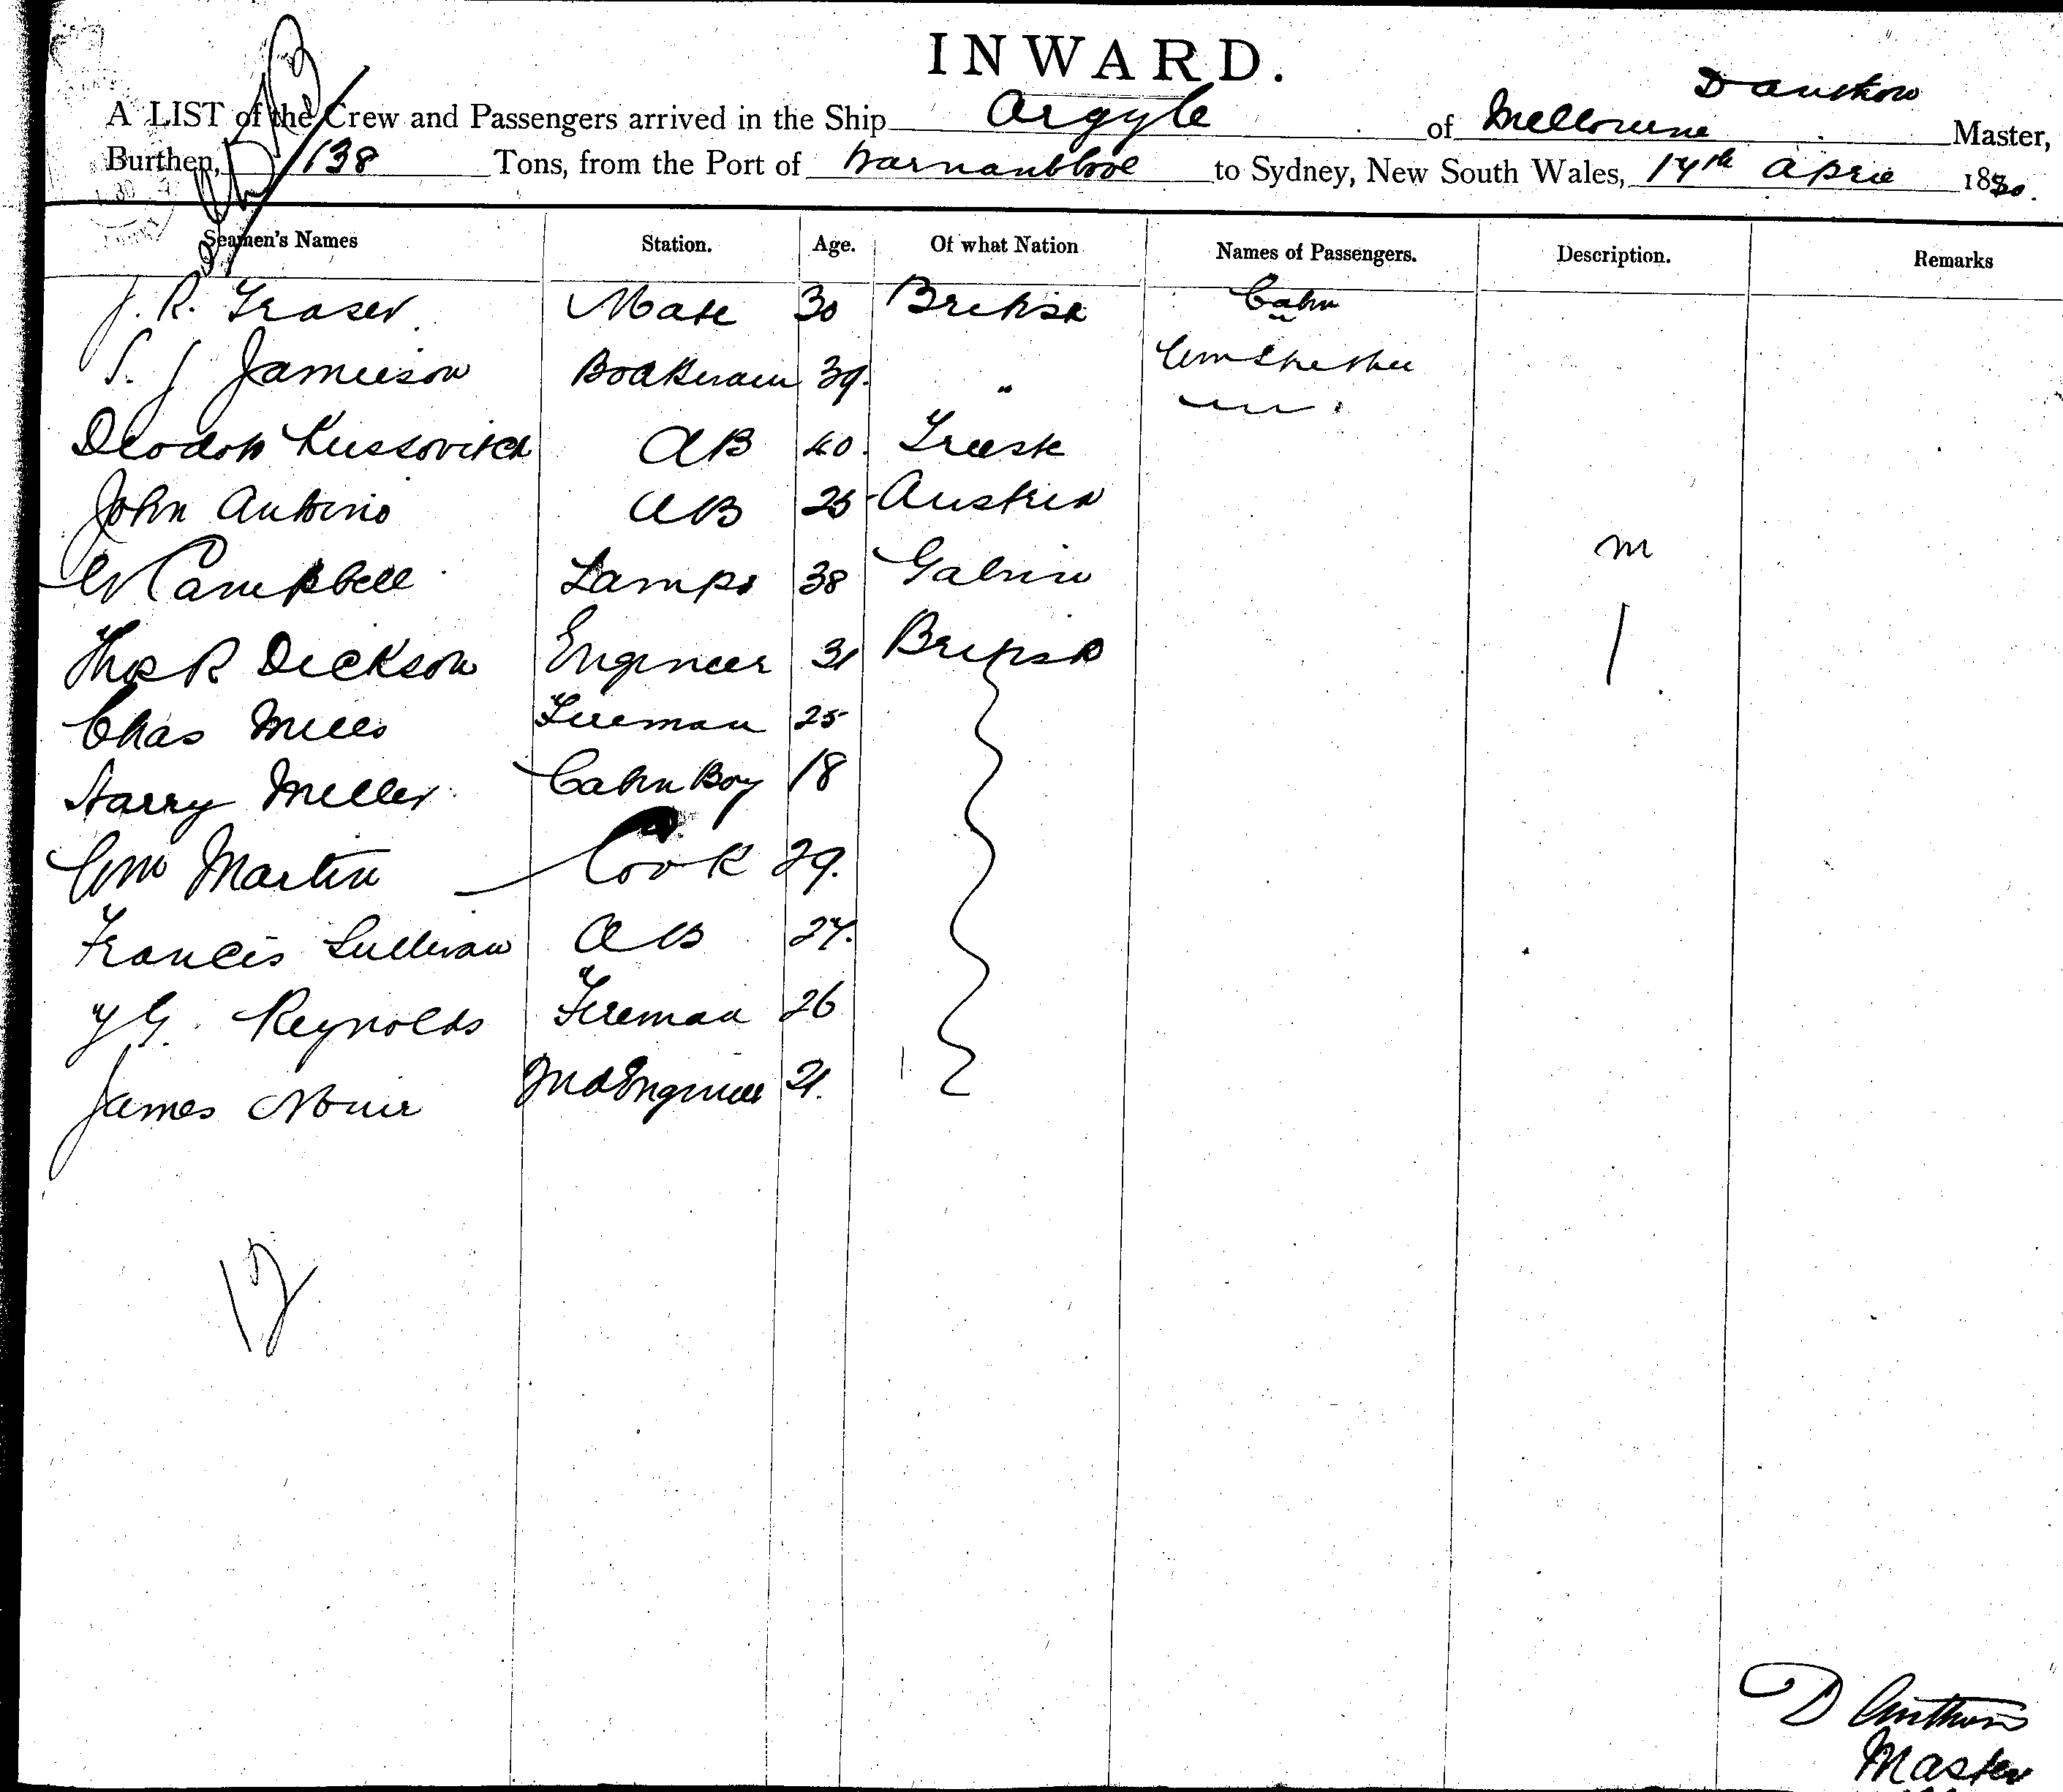 INWARD.
A LIST of the Crew and Passengers arrived in the Ship Argyle of Melbourne Master,
Burthen, 138 Tons, from the Port of Warnambool to Sydney, New South Wales, 14th April 1880.
Seamen's Names Station. Age. Of what Nation Names of Passengers. Description. Remarks
J. R. Fraser Mate 30 British Cabin
S. J Jamieson Boatswain 39. "
Kussovitch AB 40. Trieste
John Antonio AB 25 Austria
W Campbell Lamps 38 m
Thos R Dickson Engineer 31 British 1
Chas Mills Fireman 25
Harry Miller Cabin Boy 18
Wm Martin Cook 29.
Francis Sullivan AB 27.
Reynolds Fireman 26
James 2nd Engineer 21.
12
D
Master